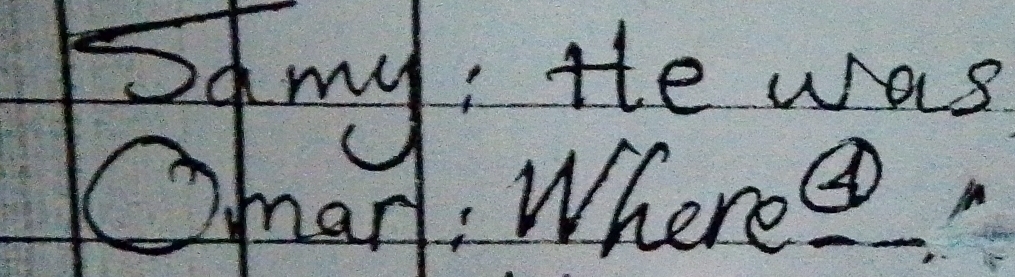 Samy: He was
Omar: Where ④ __ __